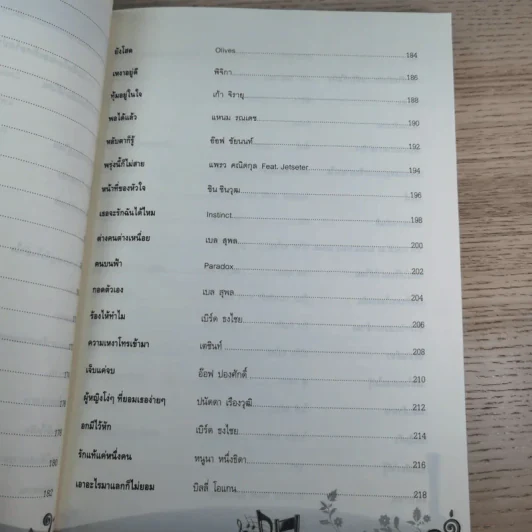 ยังโสด Olives 184
เหงาอยู่ดี พิจิกา 186
ทุ้มอยู่ในใจ เก้า จิรายุ 188
พอได้แล้ว แหนม รณเดช 190
หลับตาก็รู้ ชัยนนท์ 192
พรุ่งนี้ก็ไม่สาย แพรว คณิตกุล Feat. Jetseter 194
หน้าที่ของหัวใจ ชิน ชินวุฒ 196
เธอจะรักฉันได้ไหม Instinct 198
ต่างคนต่างเหนื่อย เบล สุพล 200
คนบนฟ้า Paradox 202
กอดตัวเอง เบล สุพล 204
ร้องไห้ทำไม เบิร์ด ธงไชย 206
ความเหงาโทรเข้ามา เดชินท์ 208
เจ็บแค่จบ อ๊อฟ ปองศักดิ์ 210
ผู้หญิงโง่ๆ ที่ยอมเธอง่ายๆ ปนัดดา เรืองวุฒิ 212
อกมีไว้หัก เบิร์ด ธงไชย 214
รักแท้แค่หนึ่งคน หนูนา หนึ่งธิดา 216
เอาอะไรมาแลกก็ไม่ยอม บิลลี่ โอแกน 218
180
182